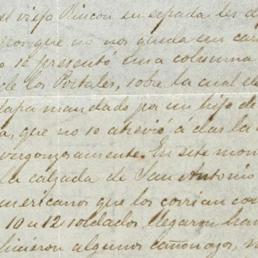 el viejo Rincon en espada les d
porque no nos queda un ca
o se presentó una columna
de los Portales, sobre la cual d
lapa mandado por un hijo de
a, que no se atrevió á dar la
vergonzosamente. En este mom
la calzada de San Antonio
americanos que los corrian con
10 a 12 soldados llegaron has
hicieron algunos cañonazos, n